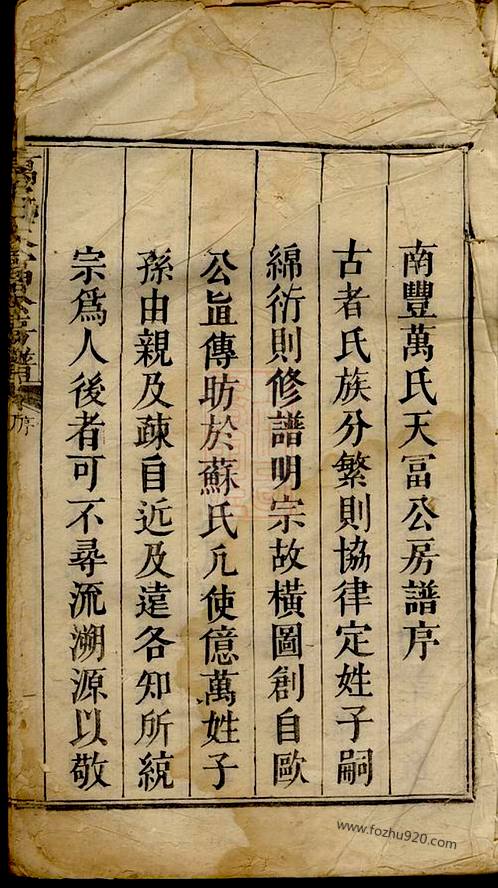 南豐萬氏天冨公房譜序
古者氏族分繁則協律定姓子嗣
綿衍則修譜明宗故橫圖創自歐
公亘傳昉於蘇氏凡使億萬姓子
孫由親及疎自近及遠各知所統
宗爲人後者可不尋流溯源以敬
www.fozhu920.com